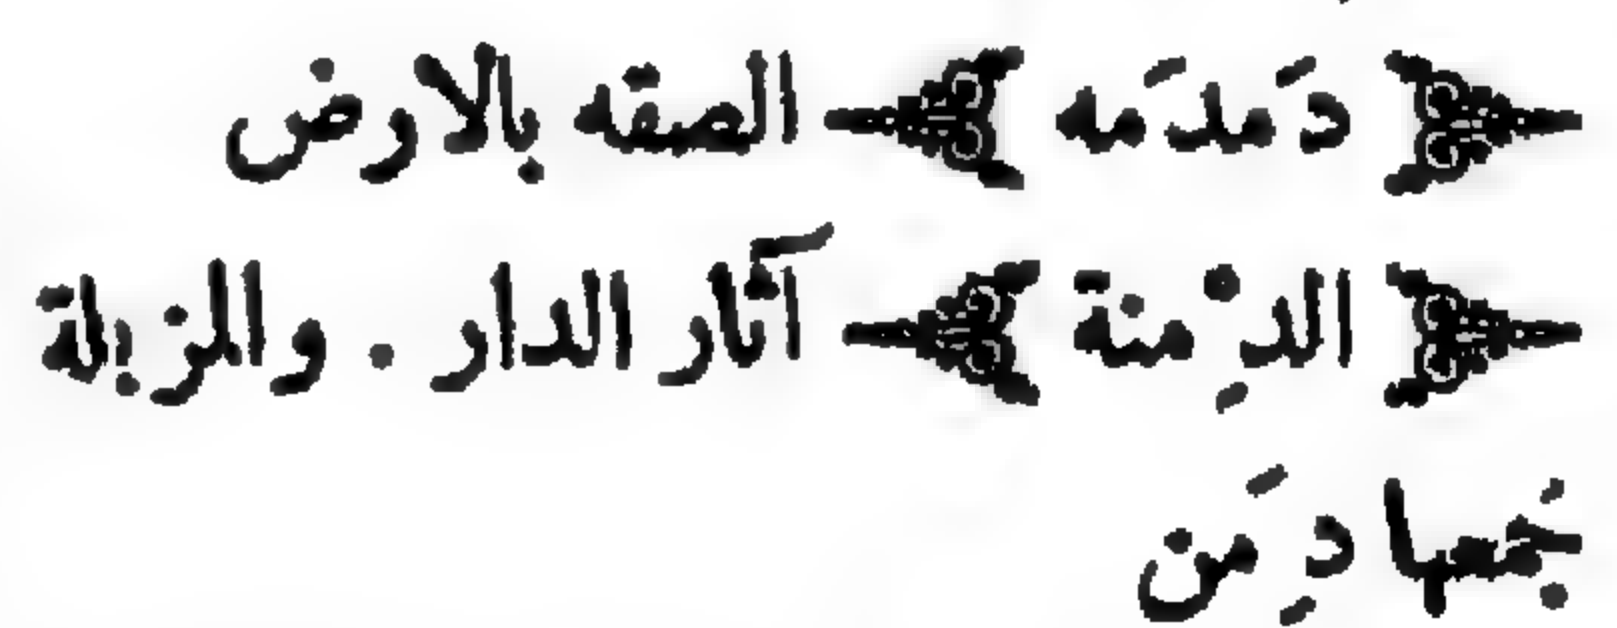 ﴿ دَمدَمه ﴾ الصقه بالارض
﴿ الدِْمنة ﴾ آثار الدار . والمزبلة
جَمعها دِمَن